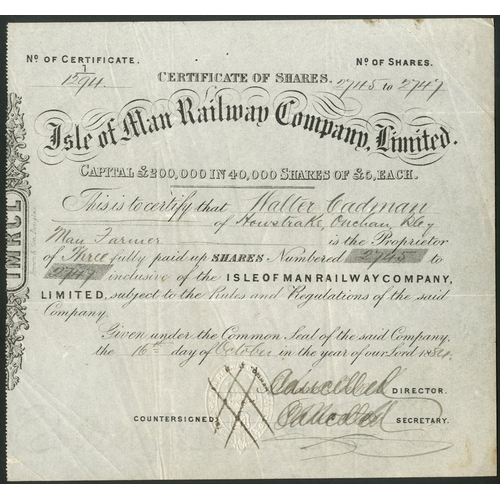 No. OF CERTIFICATE.
No. OF SHARES.
1
1294
CERTIFICATE OF SHARES.
2745 to 2747
Isle of Man Railway Company, Limited.
CAPITAL £200,000 IN 40,000 SHARES OF £5, EACH.
This is to certify that Walter Cadman
of Howstrake, Onchan, Isle of
Man Farmer is the Proprietor
of Three fully paid up SHARES Numbered 2745 to
2747 inclusive of the ISLE OF MAN RAILWAY COMPANY,
LIMITED, subject to the Rules and Regulations of the said
Company.
Given under the Common Seal of the said Company,
the 16th day of October in the year of our Lord
Cancelled DIRECTOR.
COUNTERSIGNED Cancelled SECRETARY.
IMRCL